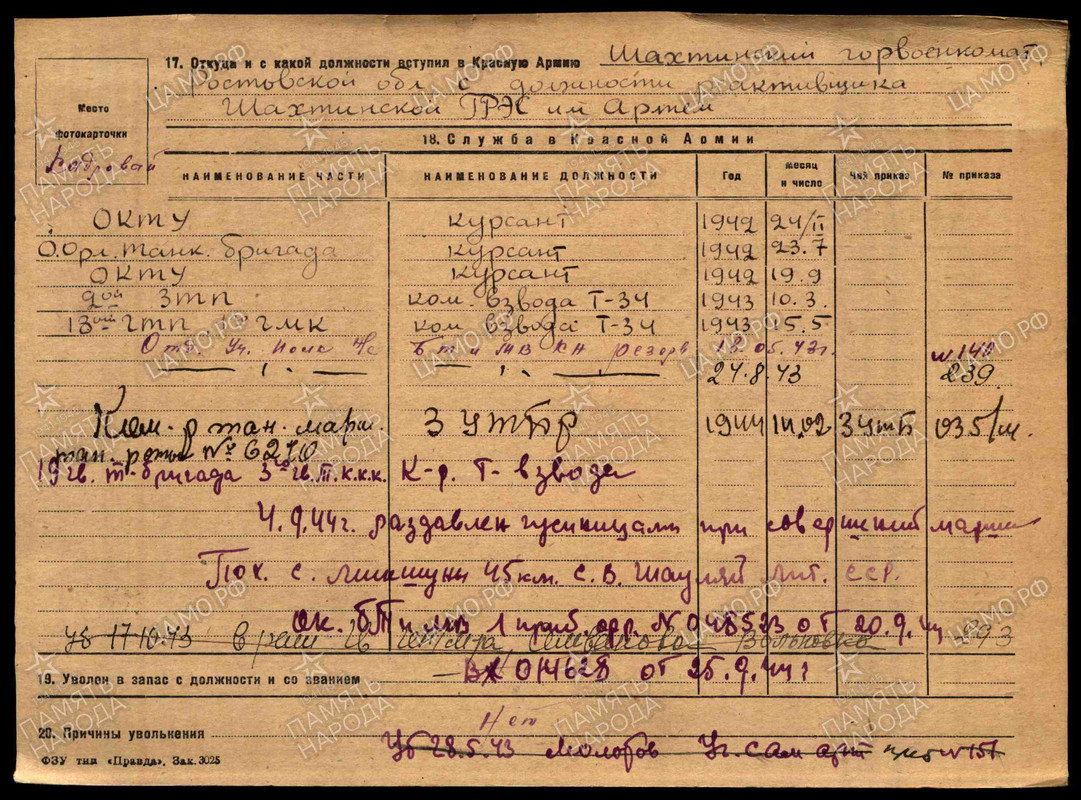 17. Откуда и с какой должности вступил в Красную Армию Шахтинский горвоенкомат
Ростовской обл с должности активщика
Шахтинской ГРЭС им Артем
Место
фотокарточки
Кадровай
18. Служба в Красной Армии
НАИМЕНОВАНИЕ ЧАСТИ НАИМЕНОВАНИЕ ДОЛЖНОСТИ Год месяц и число Чей приказ № приказа
ОКТУ курсант 1942 24/II
О.Орл. танк. бригада курсант 1942 23.7
ОКТУ курсант 1942 19.9
2ой Зтп ком. взвода Т-34 1943 10.3.
13ой гтп гмк ком. взвода Т-34 1943 15.5
Отд. Уч. Полк БТ и МВ резерв 18.05.43г. №140
— " — — " — 24.8.43 239
Ком-р тан. марш. 3 УТБР 1944 14.02 3 утБ 035/м.
тан. роты № 6270
19 гв. т-бригада 3го гв.т.к.к.к. К-р. Т-взвода
4.9.44г. раздавлен гусиницами при совершений марша
Пох. с. 45 км. с.в. Шауляй Лит. ССР.
ОК. БТ и МВ 1 приб. фр. № 048523 от 20.9.44
уб 17.10.43 в рай 293
19. Уволен в запас с должности и со званием — ВХ 014628 от 25.9.44г
Нет
20. Причины увольнения Уб 28.5.43 Молотов Уч. сам арт №151
ФЗУ тип «Правда». Зак. 3025
ПАМЯТЬ НАРОДА
ЦАМО.РФ